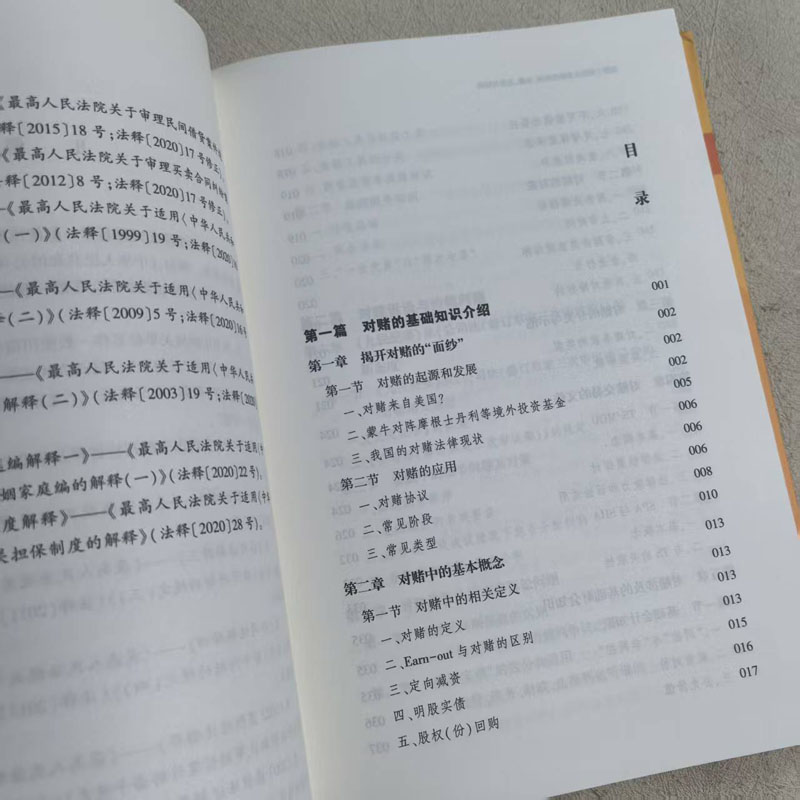 《最高人民法院关于审理民间借贷案件
释〔2015〕18号;法释〔2020〕17号修正)
《最高人民法院关于审理买卖合同纠纷
释〔2012〕8号;法释〔2020〕17号修正)。
—《最高人民法院关于适用〈中华人民共和
(一)》(法释〔1999〕19号;法释〔2020〕
—《最高人民法院关于适用〈中华人民共
(二)》(法释〔2009〕5号;法释〔2020〕16号
——《最高人民法院关于适用〈中华人
解释(二)》(法释〔2003〕19号;法释〔2020〕
编解释一》——《最高人民法院关于适用〈中
姻家庭编的解释(一)》(法释〔2020〕22号)。
度解释》——《最高人民法院关于适用〈中
担保制度的解释》(法释〔2020〕28号)。
目录
第一篇 对赌的基础知识介绍 001
第一章 揭开对赌的“面纱” 002
第一节 对赌的起源和发展 002
一、对赌来自美国? 002
二、蒙牛对阵摩根士丹利等境外投资基金 005
三、我国的对赌法律现状 006
第二节 对赌的应用 006
一、对赌协议 006
二、常见阶段 008
三、常见类型 010
第二章 对赌中的基本概念 013
第一节 对赌中的相关定义 013
一、对赌的定义 013
二、Earn-out与对赌的区别 013
三、定向减资 015
四、明股实债 016
五、股权(份)回购 017